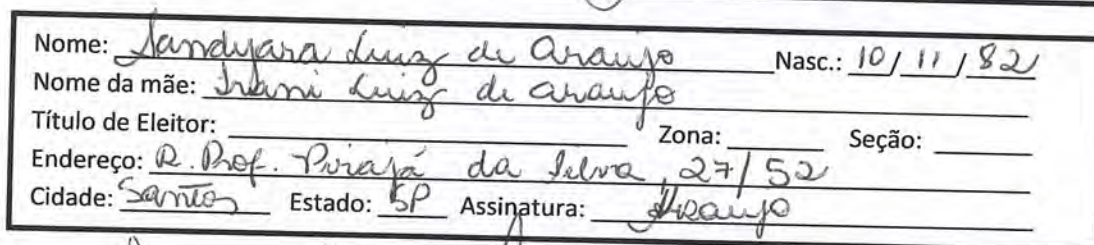 Nome: Jandyara Luiz de Araujo Nasc.: 10/11/82
Nome da mãe: Irani Luiz de Araujo
Título de Eleitor: Zona: Seção:
Endereço: R. Prof. Pirajá da Silva, 27/52
Cidade: Santos Estado: SP Assinatura: Araujo